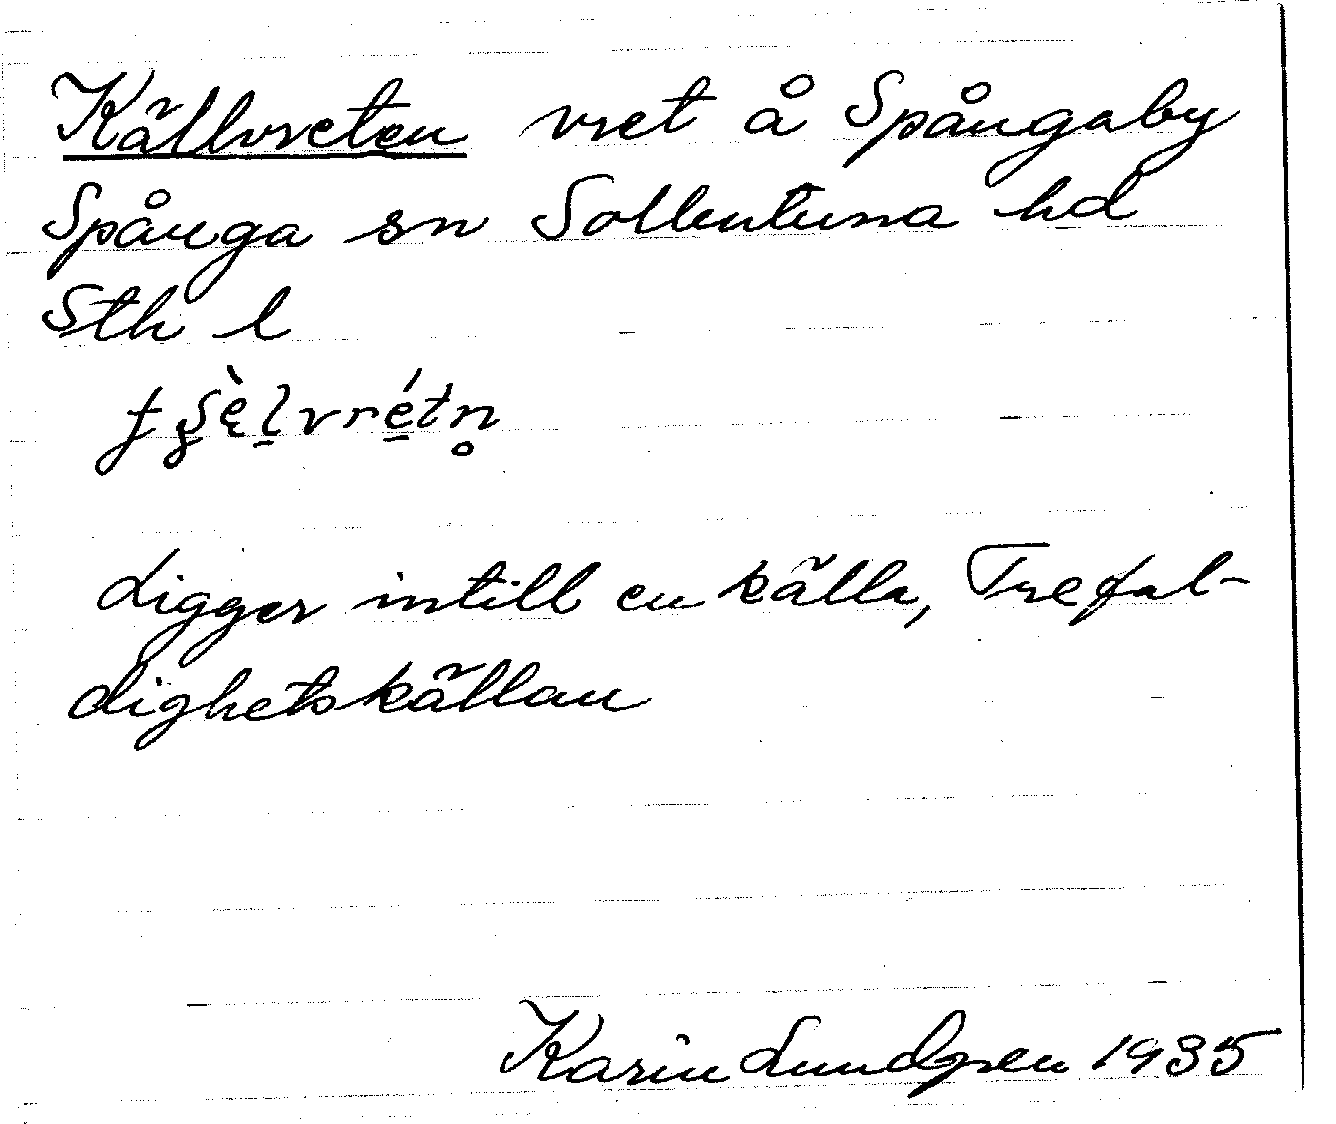 Källvreten vret å Spångaby
Spånga sn Sollentuna hd
Sth l
Ligger intill en källa, Trefal-
dighetskällan
Karin Lundgren 1935